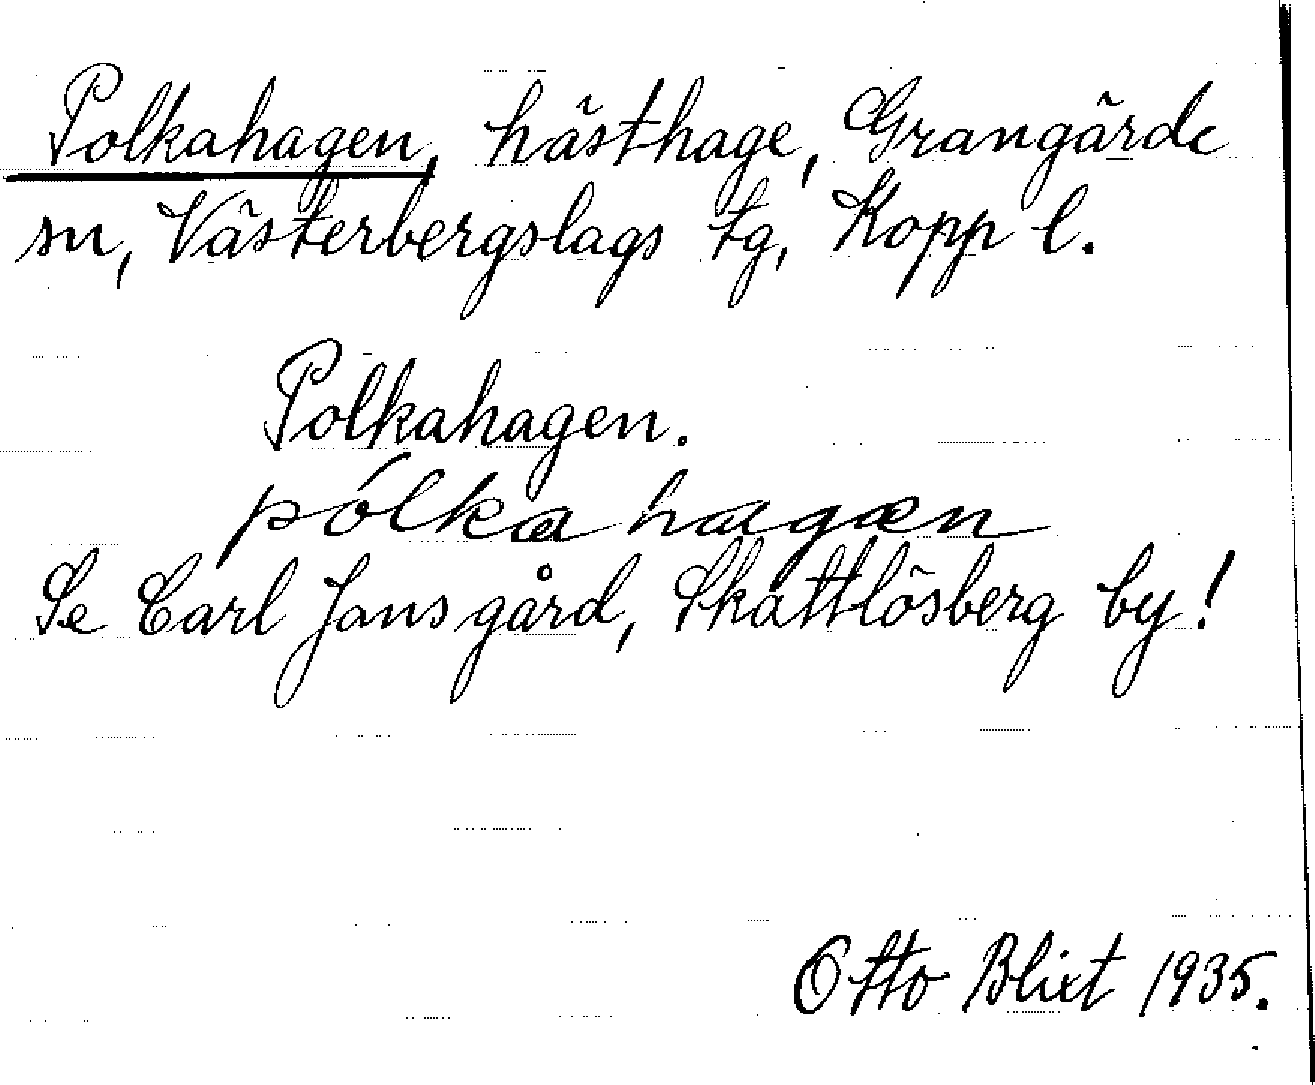 Polkahagen, hästhage, Grangärde
sn, Västerbergslags tg, Kopp l.
Polkahagen.
pólka hagæn
Se Carl Jansgård, Skattlösberg by!
Otto Blixt 1935.